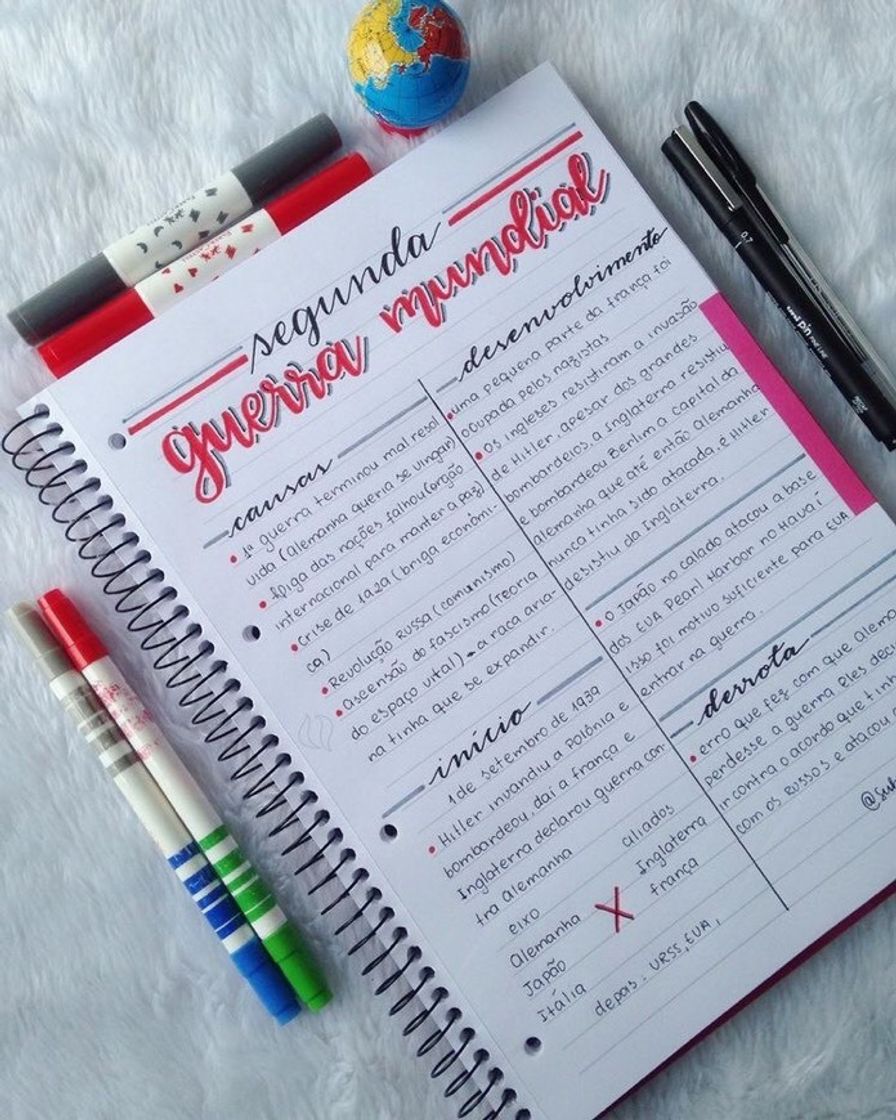 segunda
guerra mundial
causas
• 1ª guerra terminou mal resol
vida (alemanha queria se vingar)
• a liga das nações falhou (orgão
internacional para manter a paz)
• Crise de 1929 (briga econômi-
ca)
• Revolução Russa (comunismo)
• ascensão do fascismo (Teoria
do espaço vital) → a raça aria-
na tinha que se expandir.
início
1 de setembro de 1939
• Hitler invandiu a Polônia e
bombardeou, daí a frança e
Inglaterra declarou guerra con-
tra alemanha
eixo aliados
Alemanha X Inglaterra
Japão frança
Itália
depois: URSS, EUA,
desenvolvimento
• uma pequena parte da frança foi
ocupada pelos nazistas
• Os ingleses resistiram a invasão
de Hitler, apesar dos grandes
bombardeios, a Inglaterra resistiu
e bombardeou Berlim a capital da
alemanha que até então alemanha
nunca tinha sido atacada, e Hitler
desistiu da Inglaterra.
• O Japão no calado atacou a base
dos EUA Pearl Harbor no Havaí
isso foi motivo suficiente para EUA
entrar na guerra.
derrota
• erro que fez com que
perdesse a guerra Eles
ir contra o acordo que
com os russos e atacou
0.7
uni pin
FINE LINE
FABER-CASTELL